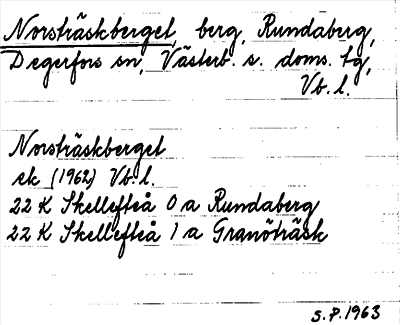 Norsträskberget, berg, Rundaberg,
Degerfors sn, Västerb. s. doms. tg,
Vb. l.
Norsträskberget
ek (1962) Vb. l.
22 K Skellefteå 0 a Rundaberg
22 K Skellefteå 1 a Granöträsk
S.P. 1963